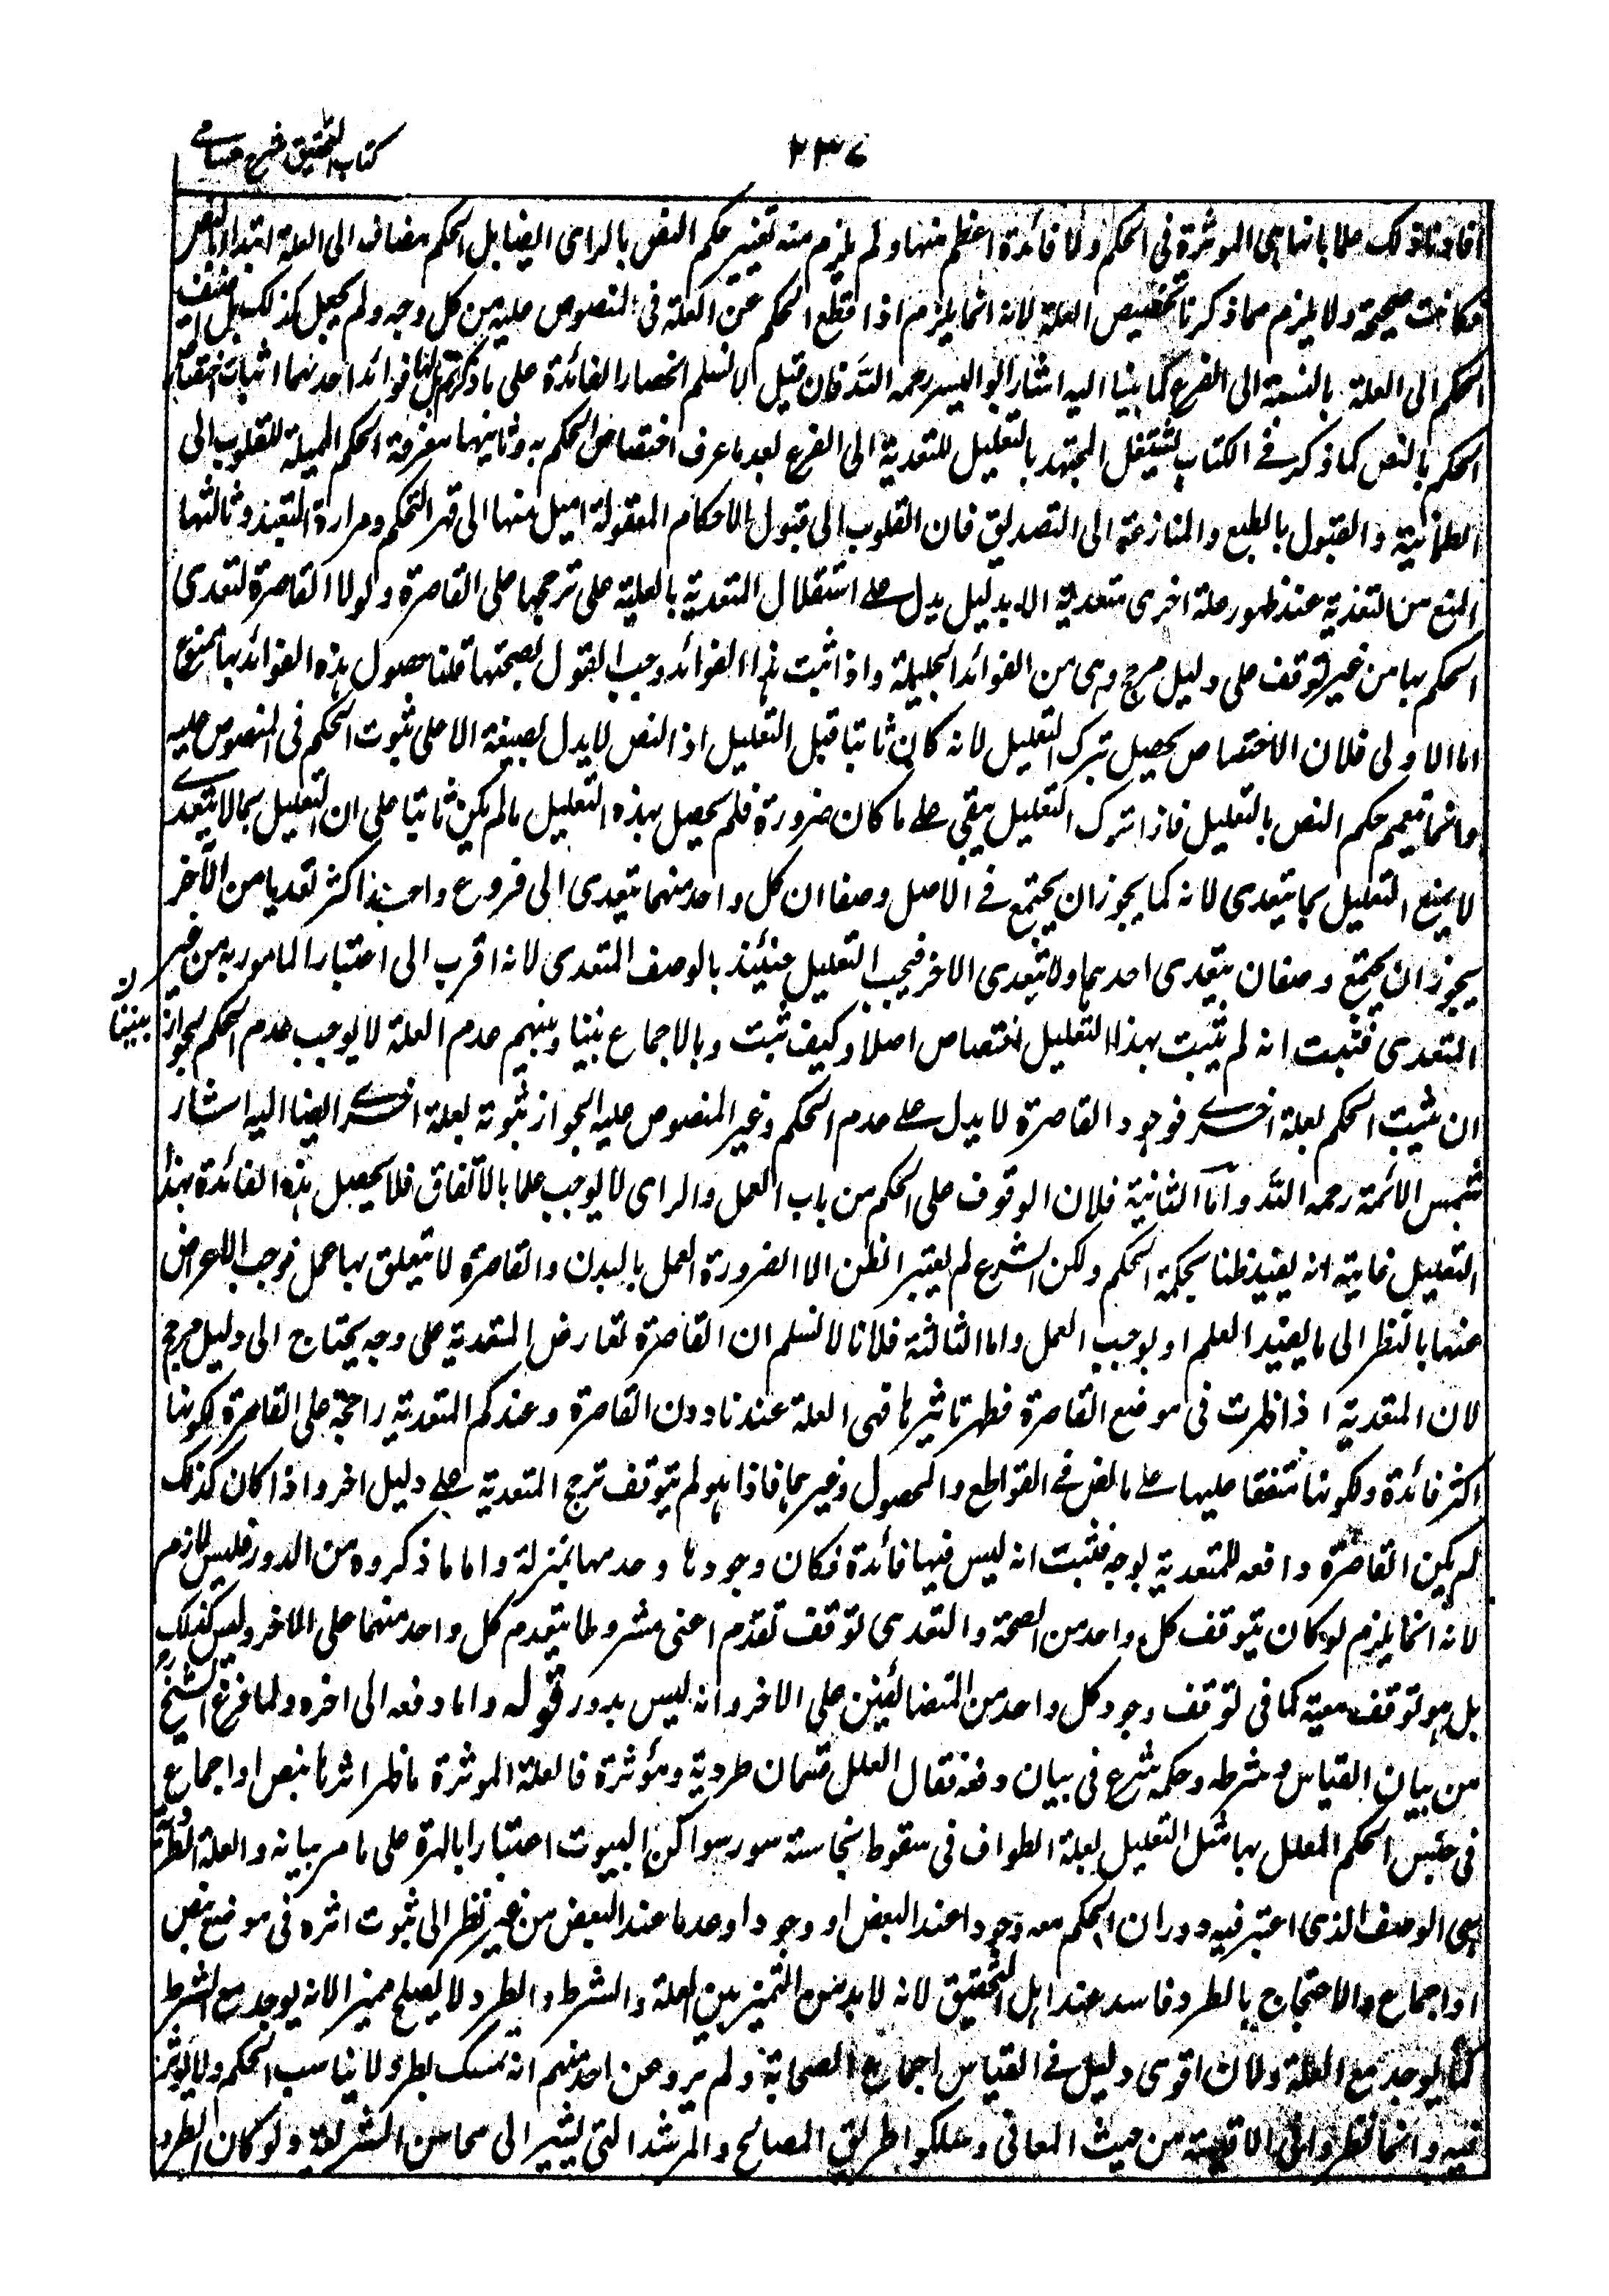 كتاب التحقيق شرح حسامي
٢٣٤
افادنا ذلك علما بانها هى الموثرة فى الحكم ولا فائدة اعظم منها ولم يلزم منه تغيير حكم النص بالراى ايضا بل الحكم مضاف الى العلة ابتداء بالنص
فكانت صحيحة ولا يلزم مما ذكرنا تخصيص العلة لانه انما يلزم اذا قطع الحكم عن العلة فى المنصوص عليه من كل وجه ولم يجعل كذلك بل اضيف
الحكم الى العلة بالنسبة الى الفرع كما بينا اليه اشار ابو اليسر رحمه الله فان قيل لا نسلم انحصار الفائدة على ما ذكرتم بل لها فوائد احدنهما اثبات اختصاص
الحكم بالنص كما ذكر فى الكتاب ليشتغل المجتهد بالتعليل للتعدية الى الفرع بعد ما عرف اختصاص الحكم به وثانيتها معرفة الحكم المميلة للقلوب الى
الطمانية والقبول بالطبع والمنازعة الى التصديق فان القلوب الى قبول الاحكام المعقولة اميل منها الى قهر التحكم ومرارة التعبد وثالثتها
المنع من التعدية عند ظهور علة اخرى متعدية الا بدليل يدل على استقلال المتعدية بالعلية على ترجحها على القاصرة ولولا القاصرة لتعدى
الحكم بها من غير توقف على دليل مرجح وهى من الفوائد الجليلة واذا ثبت هذا الفوائد وجب القول لصحتها قلنا حصول هذه الفوائد بها ممنوع
اما الاولى فلان الاختصاص يحصل بترك التعليل لانه كان ثابتا قبل التعليل اذ النص لا يدل لصيغة الا على ثبوت الحكم فى المنصوص عليه
وانما تعميم حكم النص بالتعليل فاذا ترك التعليل يبقى على ما كان ضرورة فلم يحصل بهذه التعليل ما لم يكن ثابتا على ان التعليل بما لا يتعدى
لا يمنع التعليل بما يتعدى لانه كما يجوز ان يجتمع فى الاصل وصفان كل واحد منهما يتعدى الى فروع واحدهما اكثر تعديا من الآخر
يجوز ان يجتمع وصفان يتعدى احدهما ولا يتعدى الاخر فيجب التعليل حينئذ بالوصف المتعدى لانه اقرب الى اعتبار المامور به من غير
التعدى فثبت انه لم يثبت بهذا التعليل اختصاص اصلا وكيف ثبت وبالاجماع بيننا وبينهم عدم العلة لا يوجب عدم الحكم لجواز
بيننا
ان يثبت الحكم لعلة اخرى فوجود القاصرة لا يدل على عدم الحكم وغير المنصوص عليه لجواز ثبوته لعلة اخرى ايضا اليه اشار
شمس الائمة رحمه الله واما الثانية فلان الوقوف على الحكم من باب العمل والراى لا يوجب علما بالاتفاق فلا يحصل هذه الفائدة بهذا
التعليل غايته انه يفيد ظنا بحكمة الحكم ولكن الشرع لم يعتبر الظن الا لضرورة العمل بالبدن والقاصرة لا تتعلق بها عمل فوجب الاعراض
عنها بالنظر الى ما يفيد العلم او يوجب العمل واما الثالثة فلانا لا نسلم ان القاصرة تعارض المتعدية على وجه يحتاج الى دليل مرجح
لان المتعدية اذا ظهرت فى موضع القاصرة فظهر تاثيرها فهى العلة عندنا دون القاصرة وعندكم المتعدية راجحة على القاصرة لكونها
اكثر فائدة ولكونها متفقا عليها على ما نص فى القواطع والمحصول وغيرهما فاذا هو لم يتوقف ترجح المتعدية على دليل اخر واذا كان كذلك
لم يكن القاصرة دافعه للمتعدية بوجه فثبت انه ليس فيها فائدة فكان وجودها وعدمها بمنزلة واما ما ذكروه من الدور فليس بلازم
لانه انما يلزم لو كان يتوقف كل واحد من الصحة والتعدى توقف تقدم اعنى مشروطا يتقدم كل واحد منهما على الاخر وليس كذلك
بل هو توقف معية كما فى توقف وجود كل واحد من المتضائفين على الاخر وانه ليس بدور قوله واما دفعه الى اخره ولما فرغ الشيخ
من بيان القياس وشرطه وحكمه شرع فى بيان دفعه فقال العلل قسمان طردية ومؤثرة فالعلة الموثرة ما ظهر اثرها بنص او اجماع
فى جنس الحكم المعلل بها مثل التعليل بعلة الطواف فى سقوط نجاسته سور سواكن البيوت اعتبارا بالهرة على ما مر بيانه والعلة الطردية
هى الوصف الذى اعتبر فيه دوران الحكم معه وجودا عند البعض او وجودا وعدما عند البعض من غير نظر الى ثبوت اثره فى موضع بنص
او اجماع والاحتجاج بالطرد فاسد عند اهل التحقيق لانه لا بد من التميز بين العلة والشرط والطرد لا يصلح مميزا لانه يوجد مع الشرط
كما يوجد مع العلة ولان اقوى دليل فى القياس اجماع الصحابة ولم يرو عن احد منهم انه تمسك بطرد لا يناسب الحكم ولا يوثر
فيه وانما نظروا فى الاقيسة من حيث المعانى وسلكوا طريق المصالح والمرشد التى يشير الى محاسن الشريعة ولو كان الطرد